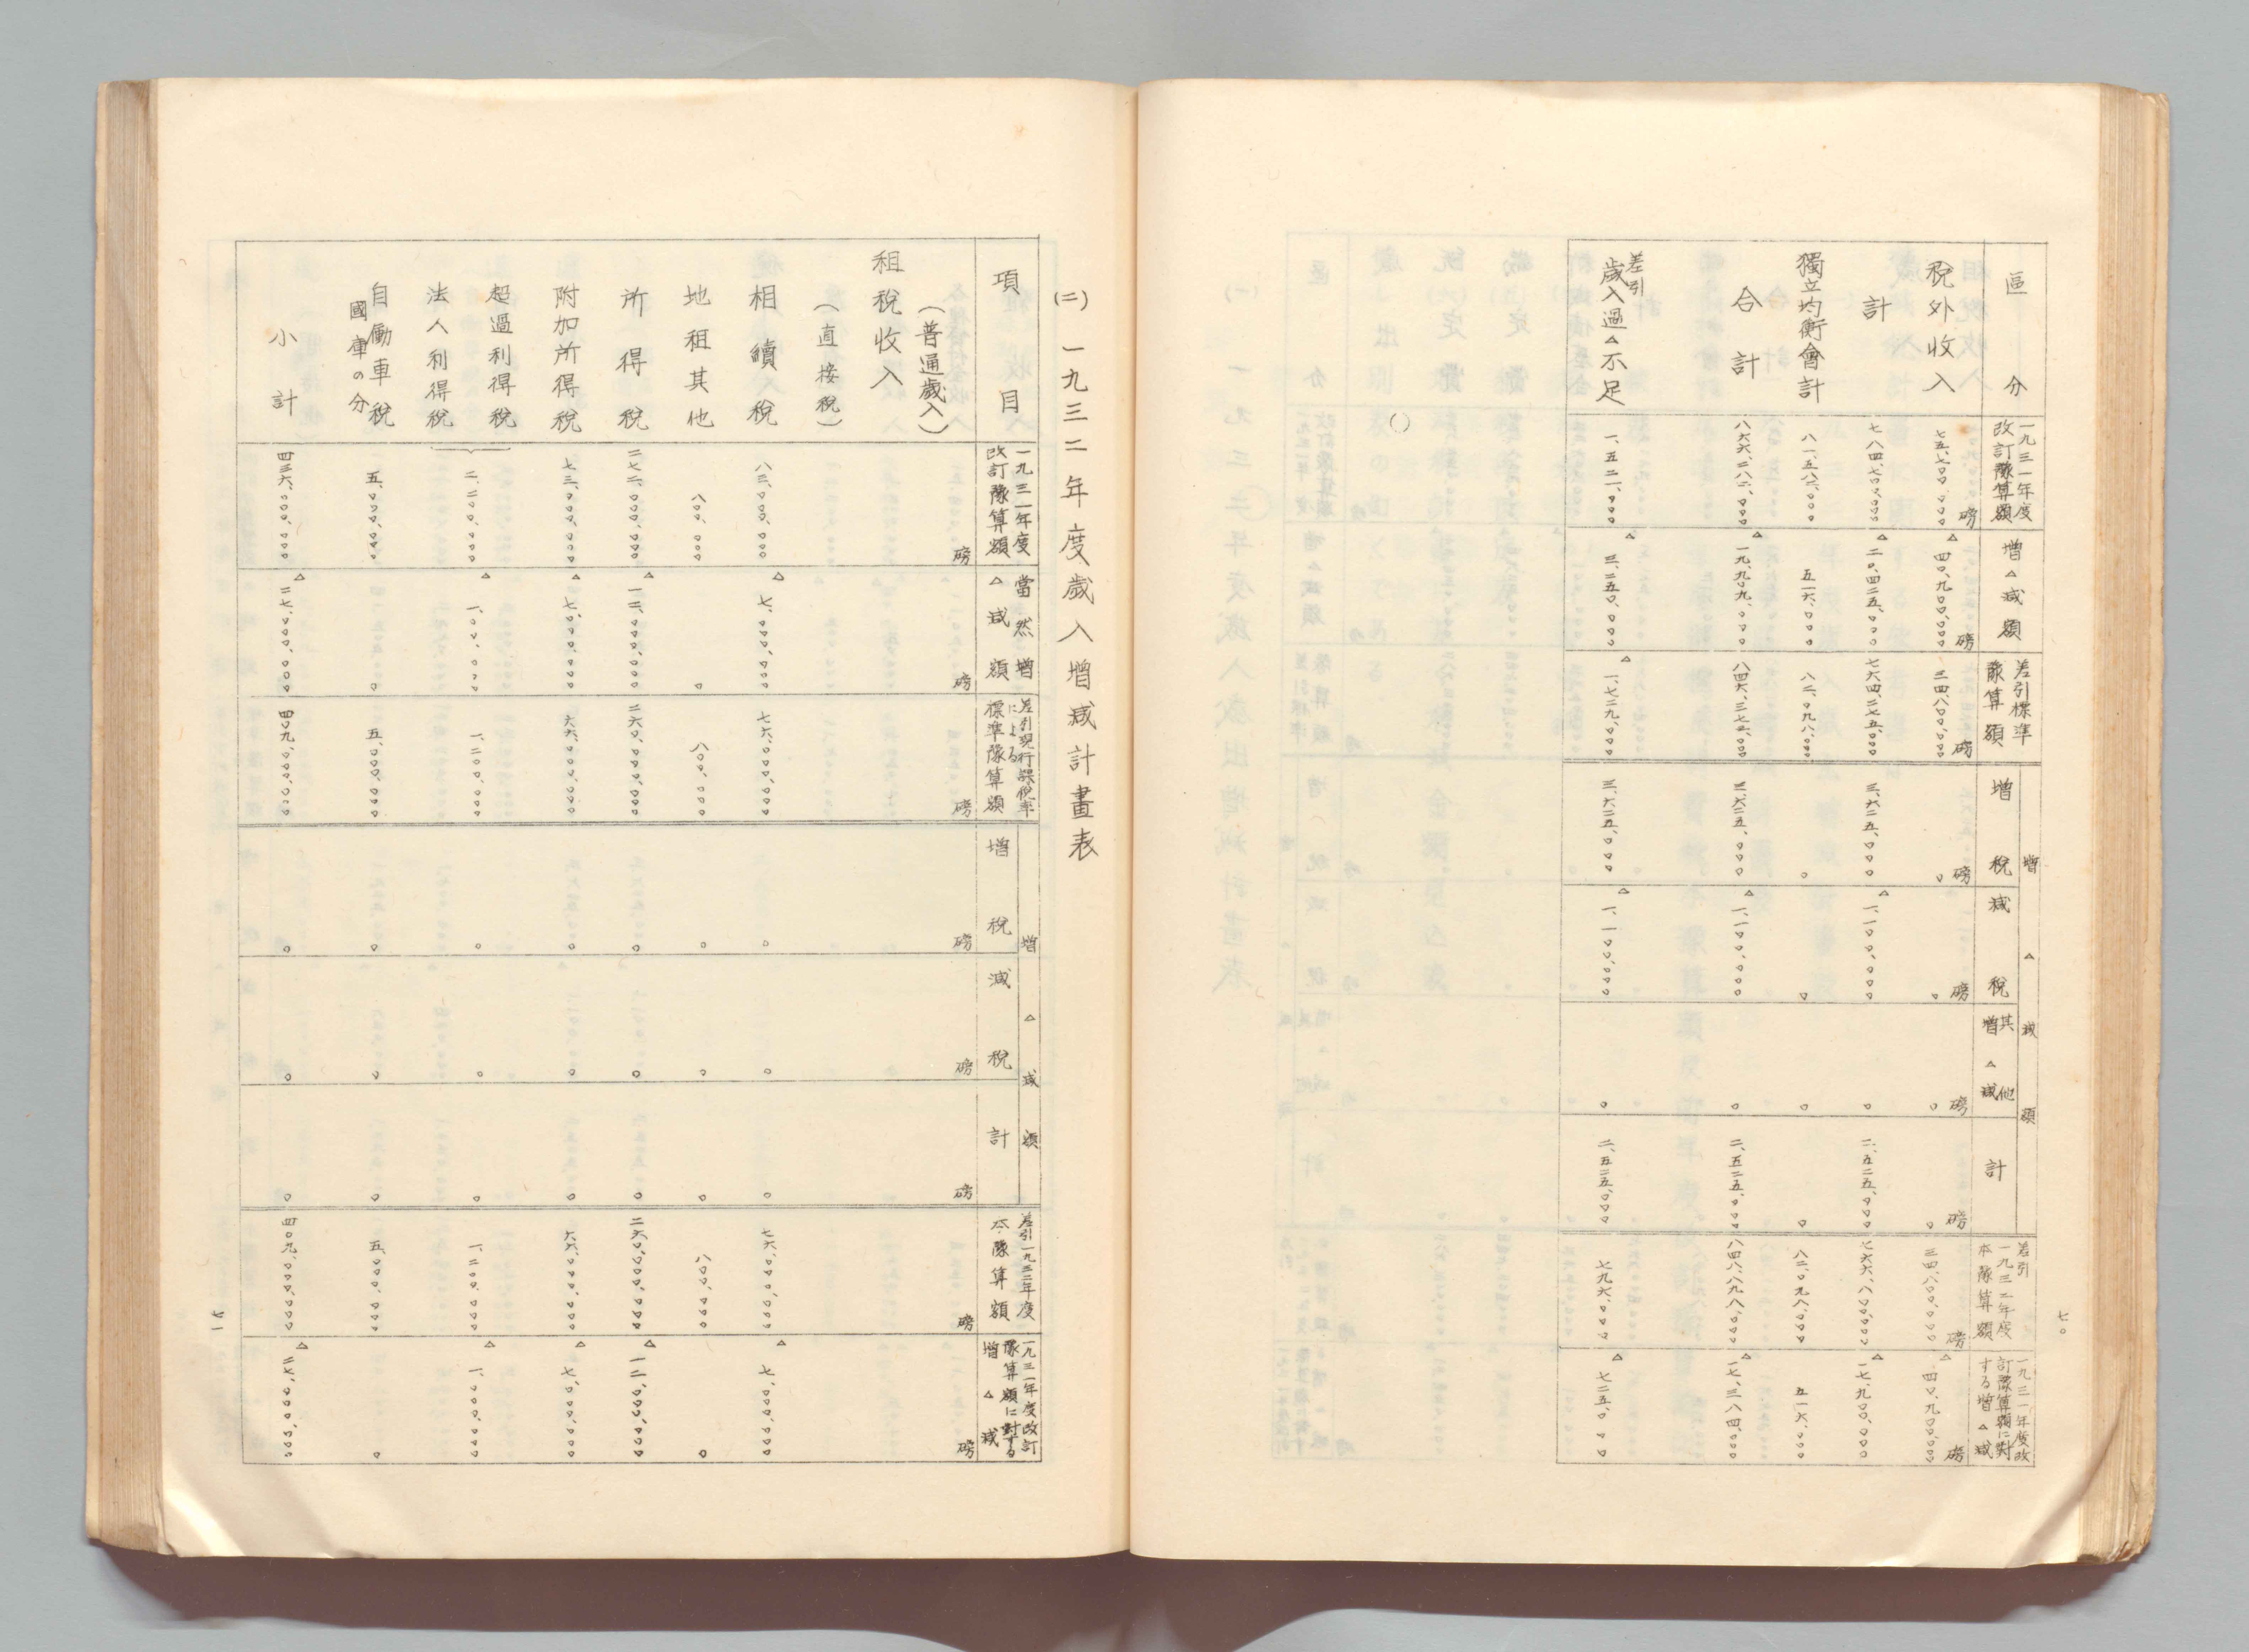 七〇
區分 一九三一年度改訂豫算額 增△減額 差引標準豫算額 增△減額 增税 減税 其他增△減 計 差引一九三二年度本豫算額 一九三一年度改訂豫算額に對する增△減
磅 磅 磅 磅 磅 磅 磅 磅 磅
税外收入 七五、七〇〇、〇〇〇 △四〇、九〇〇、〇〇〇 三四、八〇〇、〇〇〇 〇 〇 〇 〇 三四、八〇〇、〇〇〇 △四〇、九〇〇、〇〇〇
計 七八四、七〇〇、〇〇〇 △二〇、四二五、〇〇〇 七六四、二七五、〇〇〇 三、六二五、〇〇〇 △一、一〇〇、〇〇〇 〇 二、五二五、〇〇〇 七六六、八〇〇、〇〇〇 △一七、九〇〇、〇〇〇
獨立均衡會計 八一、五八二、〇〇〇 五一六、〇〇〇 八二、〇九八、〇〇〇 〇 〇 〇 〇 八二、〇九八、〇〇〇 五一六、〇〇〇
合計 八六六、二八二、〇〇〇 △一九、九〇九、〇〇〇 八四六、三七三、〇〇〇 三、六二五、〇〇〇 △一、一〇〇、〇〇〇 〇 二、五二五、〇〇〇 八四八、八九八、〇〇〇 △一七、三八四、〇〇〇
差引歳入過△不足 一、五二一、〇〇〇 △三、二五〇、〇〇〇 △一、七二九、〇〇〇 三、六二五、〇〇〇 △一、一〇〇、〇〇〇 〇 二、五二五、〇〇〇 七九六、〇〇〇 △七二五、〇〇〇
(二) 一九三二年度歳入增減計畫表
項目 一九三一年度改訂豫算額 當然增△減額 差引現行課税率による標準豫算額 增△減額 增税 減税 計 差引一九三二年度本豫算額 一九三一年度改訂豫算額に對する增△減
(普通歳入) 磅 磅 磅 磅 磅 磅 磅 磅
租税收入
(直接税)
相續税 八三、〇〇〇、〇〇〇 △七、〇〇〇、〇〇〇 七六、〇〇〇、〇〇〇 〇 〇 〇 七六、〇〇〇、〇〇〇 △七、〇〇〇、〇〇〇
地租其他 八〇〇、〇〇〇 〇 八〇〇、〇〇〇 〇 〇 〇 八〇〇、〇〇〇 〇
所得税 二七二、〇〇〇、〇〇〇 △一二、〇〇〇、〇〇〇 二六〇、〇〇〇、〇〇〇 〇 〇 〇 二六〇、〇〇〇、〇〇〇 △一二、〇〇〇、〇〇〇
附加所得税 七三、〇〇〇、〇〇〇 △七、〇〇〇、〇〇〇 六六、〇〇〇、〇〇〇 〇 〇 〇 六六、〇〇〇、〇〇〇 △七、〇〇〇、〇〇〇
超過利得税
法人利得税 二、二〇〇、〇〇〇 △一、〇〇〇、〇〇〇 一、二〇〇、〇〇〇 〇 〇 〇 一、二〇〇、〇〇〇 △一、〇〇〇、〇〇〇
自働車税國庫の分 五、〇〇〇、〇〇〇 〇 五、〇〇〇、〇〇〇 〇 〇 〇 五、〇〇〇、〇〇〇 〇
小計 四三六、〇〇〇、〇〇〇 △二七、〇〇〇、〇〇〇 四〇九、〇〇〇、〇〇〇 〇 〇 〇 四〇九、〇〇〇、〇〇〇 △二七、〇〇〇、〇〇〇
七一